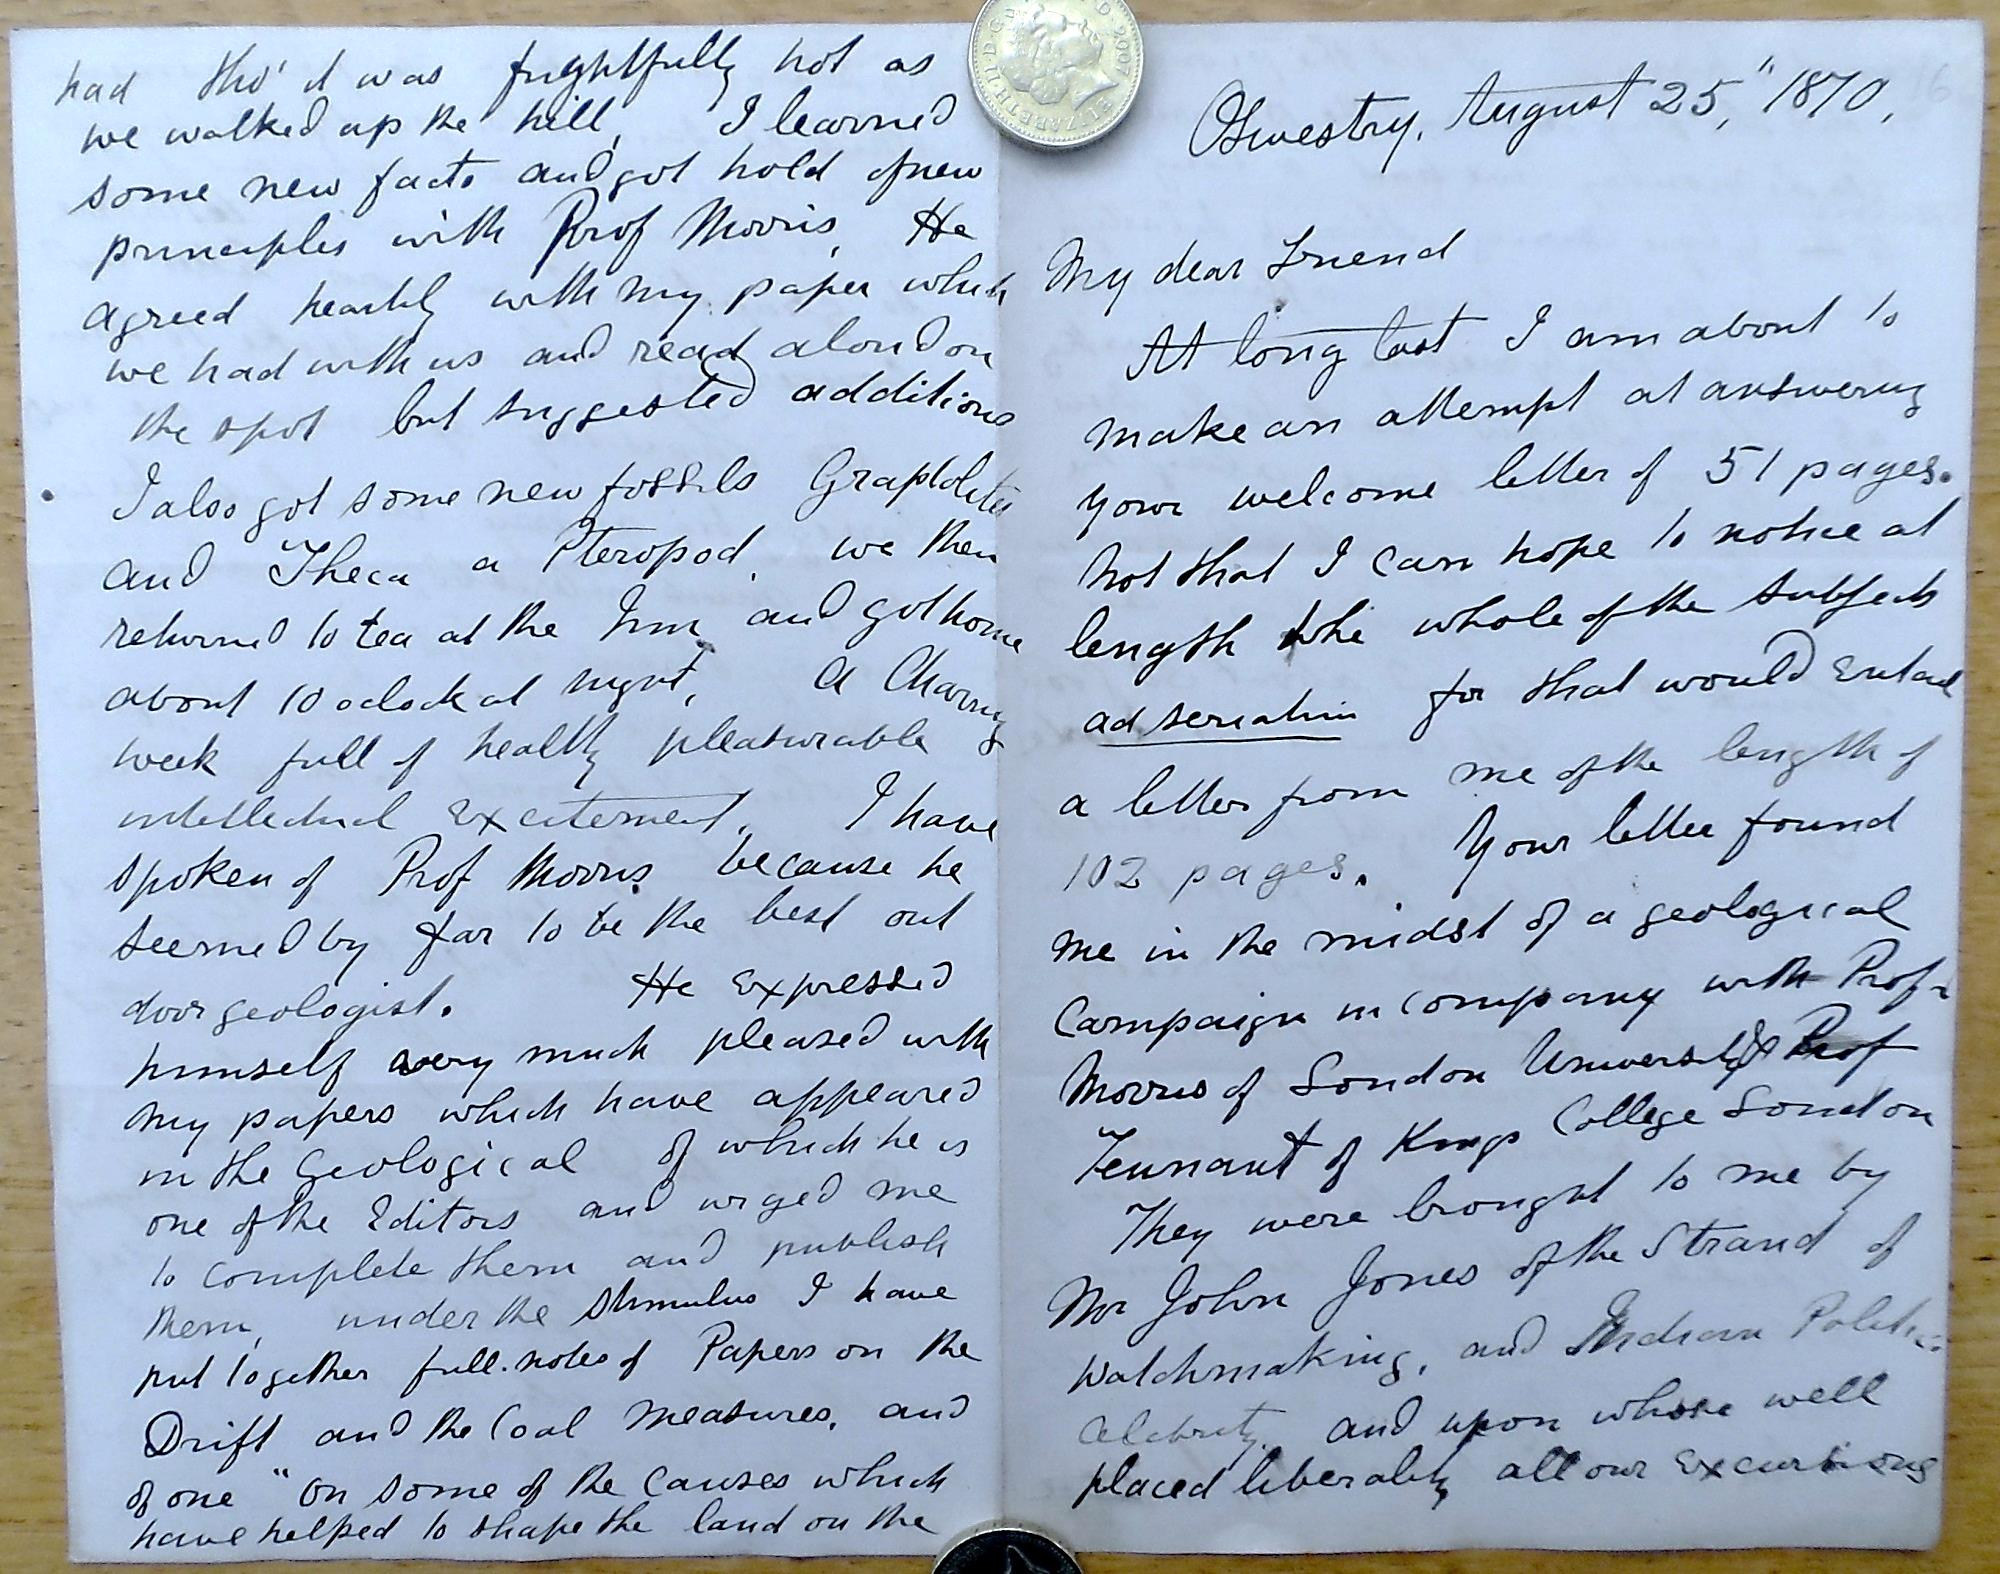 had tho' it was frightfully hot as
we walked up the hill, I learned
some new facts and got hold of new
principles with Prof Morris, He
agreed heartily with my paper which
we had with us and read aloud on
the spot but suggested additions
I also got some new fossils Graptolites
and Theca a Pteropod, we then
returned to tea at the Inn and got home
about 10 oclock at night, A Charming
week full of healthy pleasurable
intellectual Excitement, I have
spoken of Prof Morris because he
seemed by far to be the best out
door geologist. He Expressed
himself very much pleased with
my papers which have appeared
in the Geological of which he is
one of the Editors and urged me
to complete them and publish
them, under the stimulus I have
put together full notes of Papers on the
Drift and the Coal Measures, and
of one "On some of the Causes which
have helped to shape the land on the
Oswestry, August 25," 1870,
16
My dear Friend
At long last I am about to
make an attempt at answering
your welcome letter of 51 pages.
Not that I can hope to notice at
length the whole of the subjects
ad seriatim for that would Entail
a letter from me of the length of
102 pages. Your letter found
me in the midst of a geological
Campaign in company with Profr
Morris of London University & Prof
Tennant of Kings College London
They were brought to me by
Mr John Jones of the Strand of
Watchmaking, and Indian Politic
Celebrity, and upon whose well
placed liberality all our Excursions
ELIZABETH II D G 2007